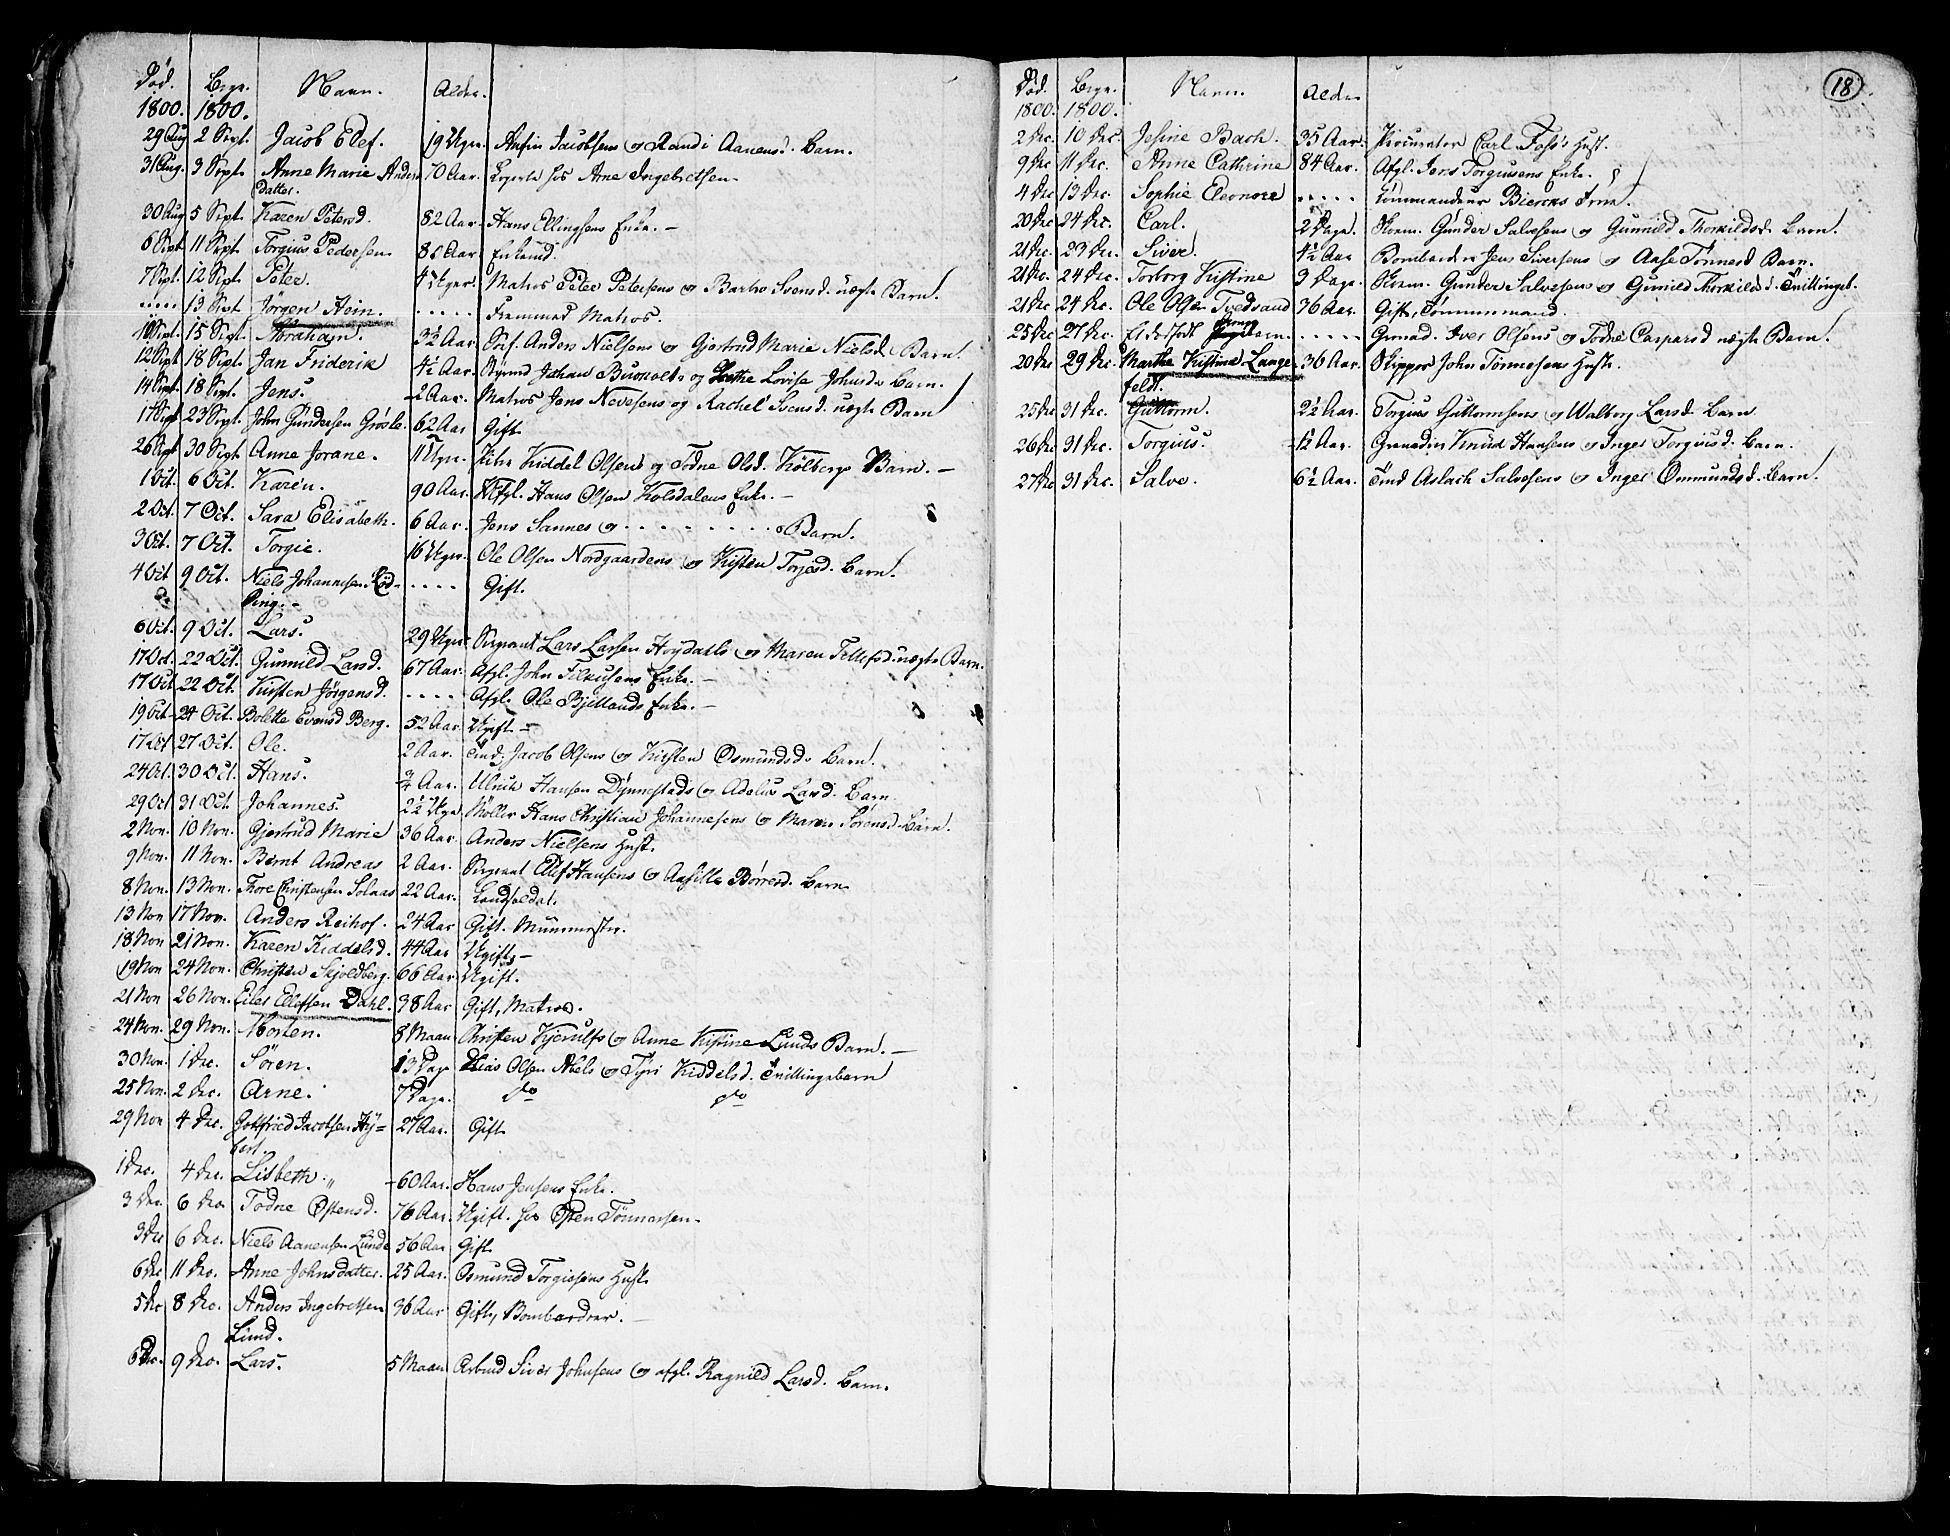 Död. Begr. Navn. Alder.
1800. 1800.
29 Aug 2 Sept. Jacob Elef. 19 Uger. Ansin Jacobsens og Randi Aanens d. Barn.
31 Aug. 3 Sept. Anne Marie Anders 70 Aar. Logerte hos Arne Ingebretsen
Datter.
30 Aug 5 Sept. Karen Petersd. 82 Aar. Hans Ellingsens Enke. –
6 Sept 11 Sept. Torgius Pedersen 86 Aar. Enkemd.
7 Sept. 12 Sept. Peter. 4 Uger. Matros Peter Petersens og Barbro Svensd. uægte Barn.
..... 13 Sept Jörgen Hein. ..... Fremmed Matros.
11 Sept. 15 Sept. Abraham. 3½ Aar. Anders Nielsens og Gjertrud Marie Nielsd. Barn.
12 Sept 18 Sept. Jan Friderik 4½ Aar. Johan Buckolts og Lovise Johnsd. Barn.
14 Sept. 18 Sept. Jens. 2 Aar. Matros Jens Nevesens og Rachel Svensd. uægte Barn
17 Sept 23 Sept. John Gundersen Grösle. 62 Aar Gift
26 Sept 30 Sept. Anne Jorane. 11 Uger. Kiddel Olsens og Todne Olsd. Kölbergs Barn. –
1 Oct. 6 Oct. Karen. 90 Aar. Afgl. Hans Olsen Kolsdalens Enke. –
2 Oct. 7 Oct. Sara Elisabeth. 6 Aar. Jens Sannes og ........ Barn.
3 Oct. 7 Oct. Torgie. 16 Uger. Ole Olsen Nordgaardens og Kisten Torjesd. Barn.
4 Oct 9 Oct. Niels Johannesen Löd- .... Gift.
ding. –
6 Oct. 9 Oct. Lars. 29 Uger Sergeant Lars Larsen Høydahls og Maren Tellefsd. uægte Barn.
17 Oct. 22 Oct. Gunnild Larsd. 67 Aar. Afgl. John Filkusens Enke. –
17 Oct 22 Oct. Kirsten Jörgensd. .... Afgl. Ole Bjellands Enke. –
19 Oct 24 Oct. Bolette Evensd Berg. 52 Aar. Ugift –
17 Oct 27 Oct. Ole. 2 Aar. Tind. Jacob Olsens og Kirsten Osmundsd. Barn.
24 Oct. 30 Oct. Hans. ¾ Aar. Ulrich Hansen Dynnestads og Adelus Larsd. Barn
29 Oct 31 Oct. Johannes. 2½ Uger. Möller Hans Christian Johannesens og Maren Sörensd. Barn.
2 Nov. 10 Nov. Gjertrud Marie 36 Aar. Anders Nielsens Hust.
9 Nov. 11 Nov. Bernt Andreas 2 Aar. Sergeant Ellef Hansens og Assille Börresd. Barn
8 Nov. 13 Nov. Thore Christensen Solaas 22 Aar. Landsoldat.
13 Nov 17 Nov. Anders Reihof. 24 Aar Gift. Muurmester.
18 Nov 21 Nov. Karen Kiddelsd. 44 Aar Ugift –
19 Nov 24 Nov. Christen Skjoldberg. 66 Aar Ugift.
21 Nov 26 Nov. Eilef Ellefsen Dahl. 38 Aar Gift, Matros.
24 Nov. 29 Nov. Morten. 8 Maan Christen Kjerulfs og Anne Kistine Lunds Barn. –
30 Nov. 1 Dec. Sören. 13 Dage Elias Olsen Aaels og Tyri Kiddelsd. Tvillingebarn
25 Nov. 2 Dec. Arne. 7 Dage. do do
29 Nov 4 Dec. Gotfried Jacobsen Hy- 27 Aar. Gift
bert.
1 Dec. 4 Dec. Lisbeth. „ 60 Aar. Hans Jensens Enke.
3 Dec. 6 Dec. Todne Ostensd. 76 Aar. Ugift. hos Osten Tönnesen.
3 Dec 6 Dec. Niels Aanensen Lunde 56 Aar Gift
6 Dec 11 Dec. Anne Johnsdatter. 25 Aar. Osmund Torgiesens Hust
5 Dec 8 Dec. Anders Ingebretsen 36 Aar Gift, Bombardeer. –
Lund.
6 Dec. 9 Dec. Lars. 5 Maan Arbmd Siver Johnsens og afgl. Ragnild Larsd. Barn.
18
Död. Begr. Navn. Alder
1800. 1800.
2 Dec. 10 Dec. Jesine Bach. 35 Aar. Procurator Carl Foss's Hust.
9 Dec. 11 Dec. Anne Cathrine 84 Aar. Afgl. Jens Torgiusens Enke.
4 Dec 13 Dec. Sophie Eleonore ..... Commandeur Bierens
20 Dec 24 Dec. Carl. 2 Dage. Gunder Salvesens og Gunnild Thorkildsd. Barn.
21 Dec. 23 Dec. Siver. 4½ Aar Bombardeer Jens Siversens og Aase Tönnesd Barn.
21 Dec. 24 Dec. Torborg Kistine 3 Dage. Gunder Salvesens og Gunild Thorkildsd. Tvillingeb.
21 Dec 24 Dec. Ole Olsen Tvedsand 36 Aar. Gift, Tömmermand.
25 Dec 27 Dec. ..... Grenad. Iver Olsens og Todne Caspersd uægte Barn.
20 Dec 29 Dec. Marthe Kistine Lange- 36 Aar. Skipper John Tönnesens Hust.
feldt.
25 Dec 31 Dec. Guttorm. 2½ Aar. Torgius Guttormsens og Walborg Larsd. Barn
26 Dec 31 Dec. Torgius. 1½ Aar. Grenadeer Knud Hansens og Inger Torgiusd. Barn.
27 Dec 31 Dec. Salve. 6½ Aar. Tind Aslach Salvesens og Inger Ommundsd. Barn.